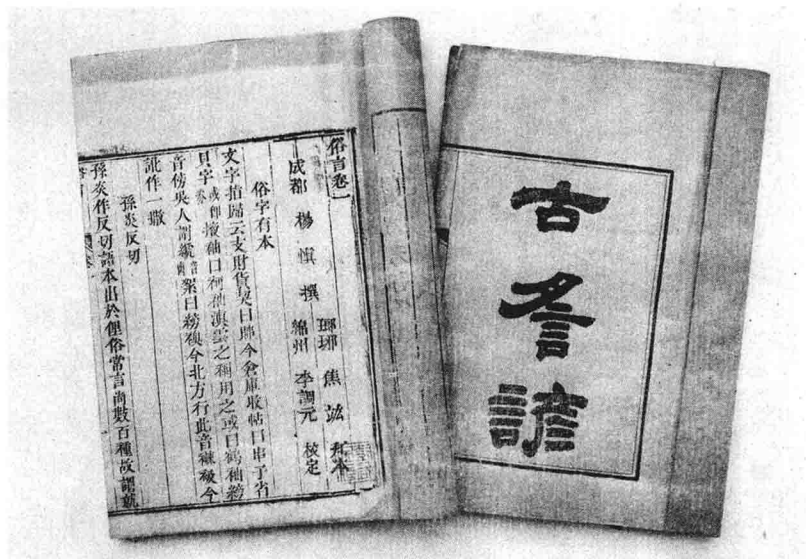 俗言卷一
成都 楊慎 撰
瑯琊 焦竑
綿州 李調元 校定
俗字有本
文字指歸云支財貨契曰 今倉庫收帖曰串子省
貝字 袖曰 袖滇雲之 用之或曰鶴袖
音傍吳人謂 絮曰 今北方行此音 今
訛作一撒
孫炎反切
孫炎作反切語本出於俚俗常言尚數百種故謂就
古
諺